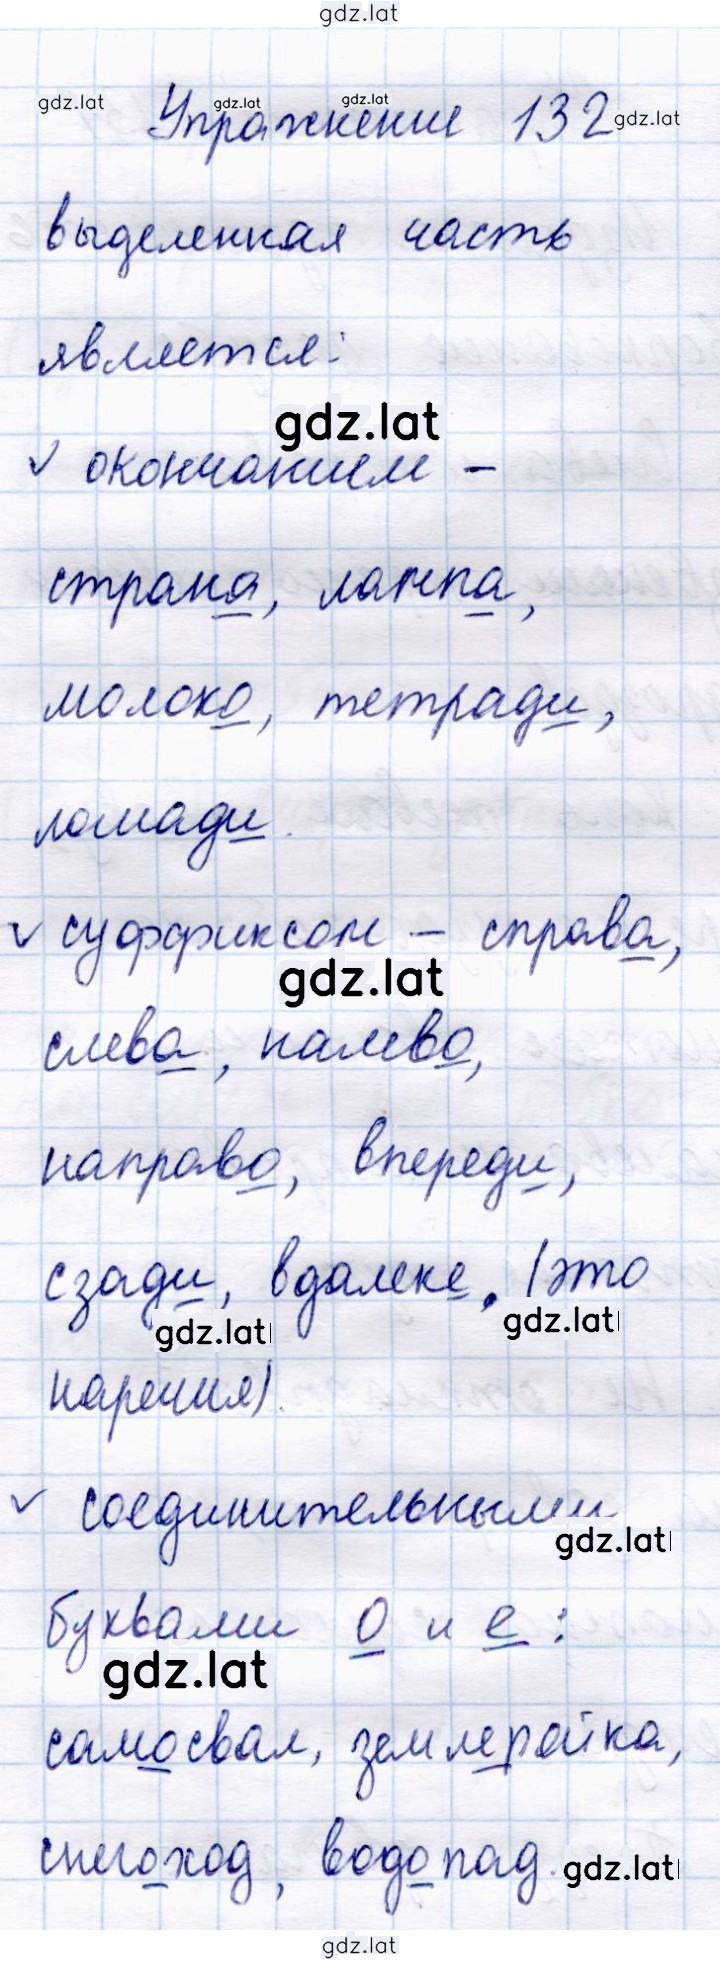 gdz.lat
gdz.lat gdz.lat gdz.lat
Упражнение 132 gdz.lat
выделенная часть
является:
gdz.lat
√ окончанием –
страна, лампа,
молоко, тетради,
лошади.
√ суффиксом – справа,
gdz.lat
слева, налево,
направо, впереди,
сзади, вдалеке. (это
gdz.lat gdz.lat
наречия).
√ соединительными
gdz.lat
буквами о и е:
gdz.lat
самосвал, землеройка,
снегоход, водопад. gdz.lat
gdz.lat